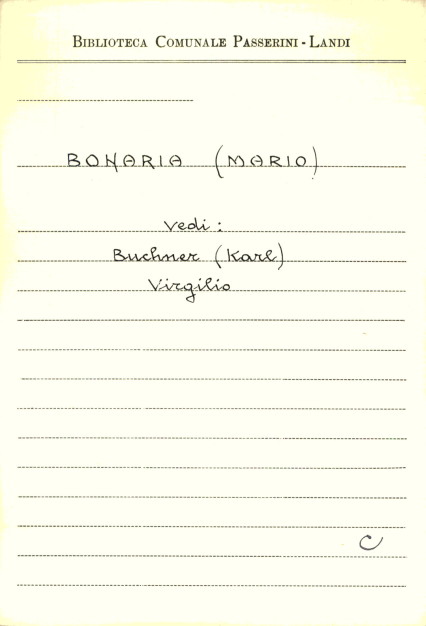 BIBLIOTECA COMUNALE PASSERINI - LANDI
BONARIA (MARIO)
Vedi :
Buchner (Karl)
Virgilio
C